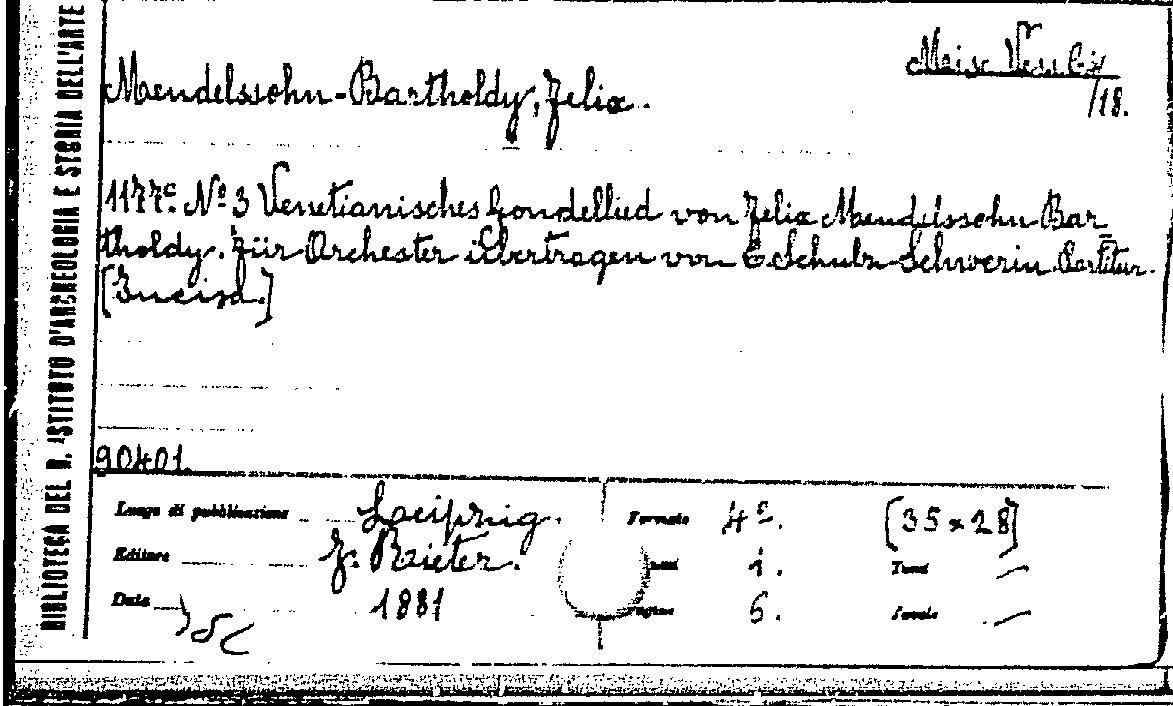 BIBLIOTECA DEL R. ISTITUTO D'ARCHEOLOGIA E STORIA DELL'ARTE
/18.
Mendelssohn-Bartholdy, Felix.
1177c. Nº 3 Venetianisches Gondellied von Felix Mendelssohn Bar
tholdy. Für Orchester übertragen von E. Schulz-Schwerin. Partitur.
90401.
Luogo di pubblicazione Leipzig. Formato 4º. [35 x 28]
Editore J. Rieter. 1. Tomi —
Data 1881 Pagine 5. Tavole —